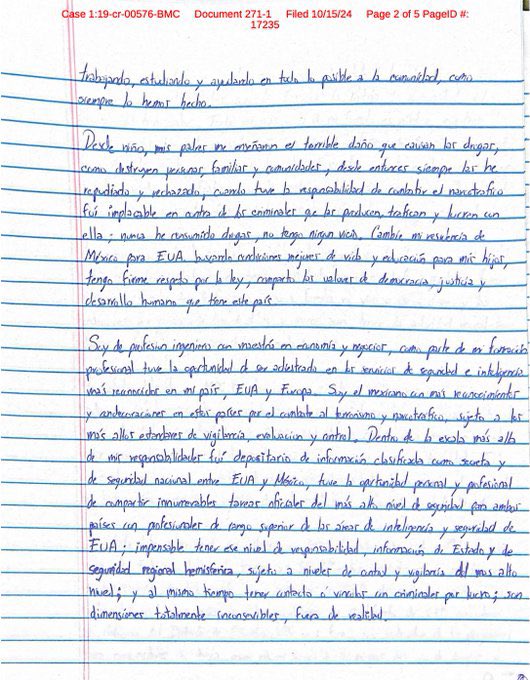 Case 1:19-cr-00576-BMC Document 271-1 Filed 10/15/24 Page 2 of 5 PageID #:
17235
trabajando, estudiando y ayudando en todo lo posible a la comunidad, como
siempre lo hemos hecho.
Desde niño, mis padres me enseñaron el terrible daño que causan las drogas,
como destruyen personas, familias y comunidades, desde entonces siempre las he
repudiado y rechazado, cuando tuve la responsabilidad de combatir el narcotrafico
fui implacable en contra de los criminales que las producen, trafican y lucran con
ella; nunca he consumido drogas, no tengo ningun vicio. Cambie mi residencia de
México para EUA buscando condiciones mejores de vida y educación para mis hijos,
tengo firme respeto por la ley, comparto los valores de democracia, justicia y
desarrollo humano que tiene este país.
Soy de profesion ingeniero con maestría en economía y negocios, como parte de mi formación
profesional tuve la oportunidad de ser adiestrado en los servicios de seguridad e inteligencia
más reconocidos en mi país, EUA y Europa. Soy el mexicano con mas reconocimientos
y condecoraciones en estos paises por el combate al terrorismo y narcotrafico, sujeto a los
más altos estandares de vigilancia, evaluacion y control. Dentro de la escala más alta
de mis responsabilidades fui depositario de información clasificada como secreta y
de seguridad nacional entre EUA y México, tuve la oportunidad personal y profesional
de compartir innumerables tareas oficiales del más alto nivel de seguridad para ambos
países con profesionales de rango superior de las areas de inteligencia y seguridad de
EUA; impensable tener ese nivel de responsabilidad, información de Estado y de
seguridad regional hemisferica, sujeto a niveles de control y vigilancia del mas alto
nivel; y al mismo tiempo tener contacto ó vinculos con criminales por lucro; son
dimensiones totalmente inconcevibles, fuera de realidad.